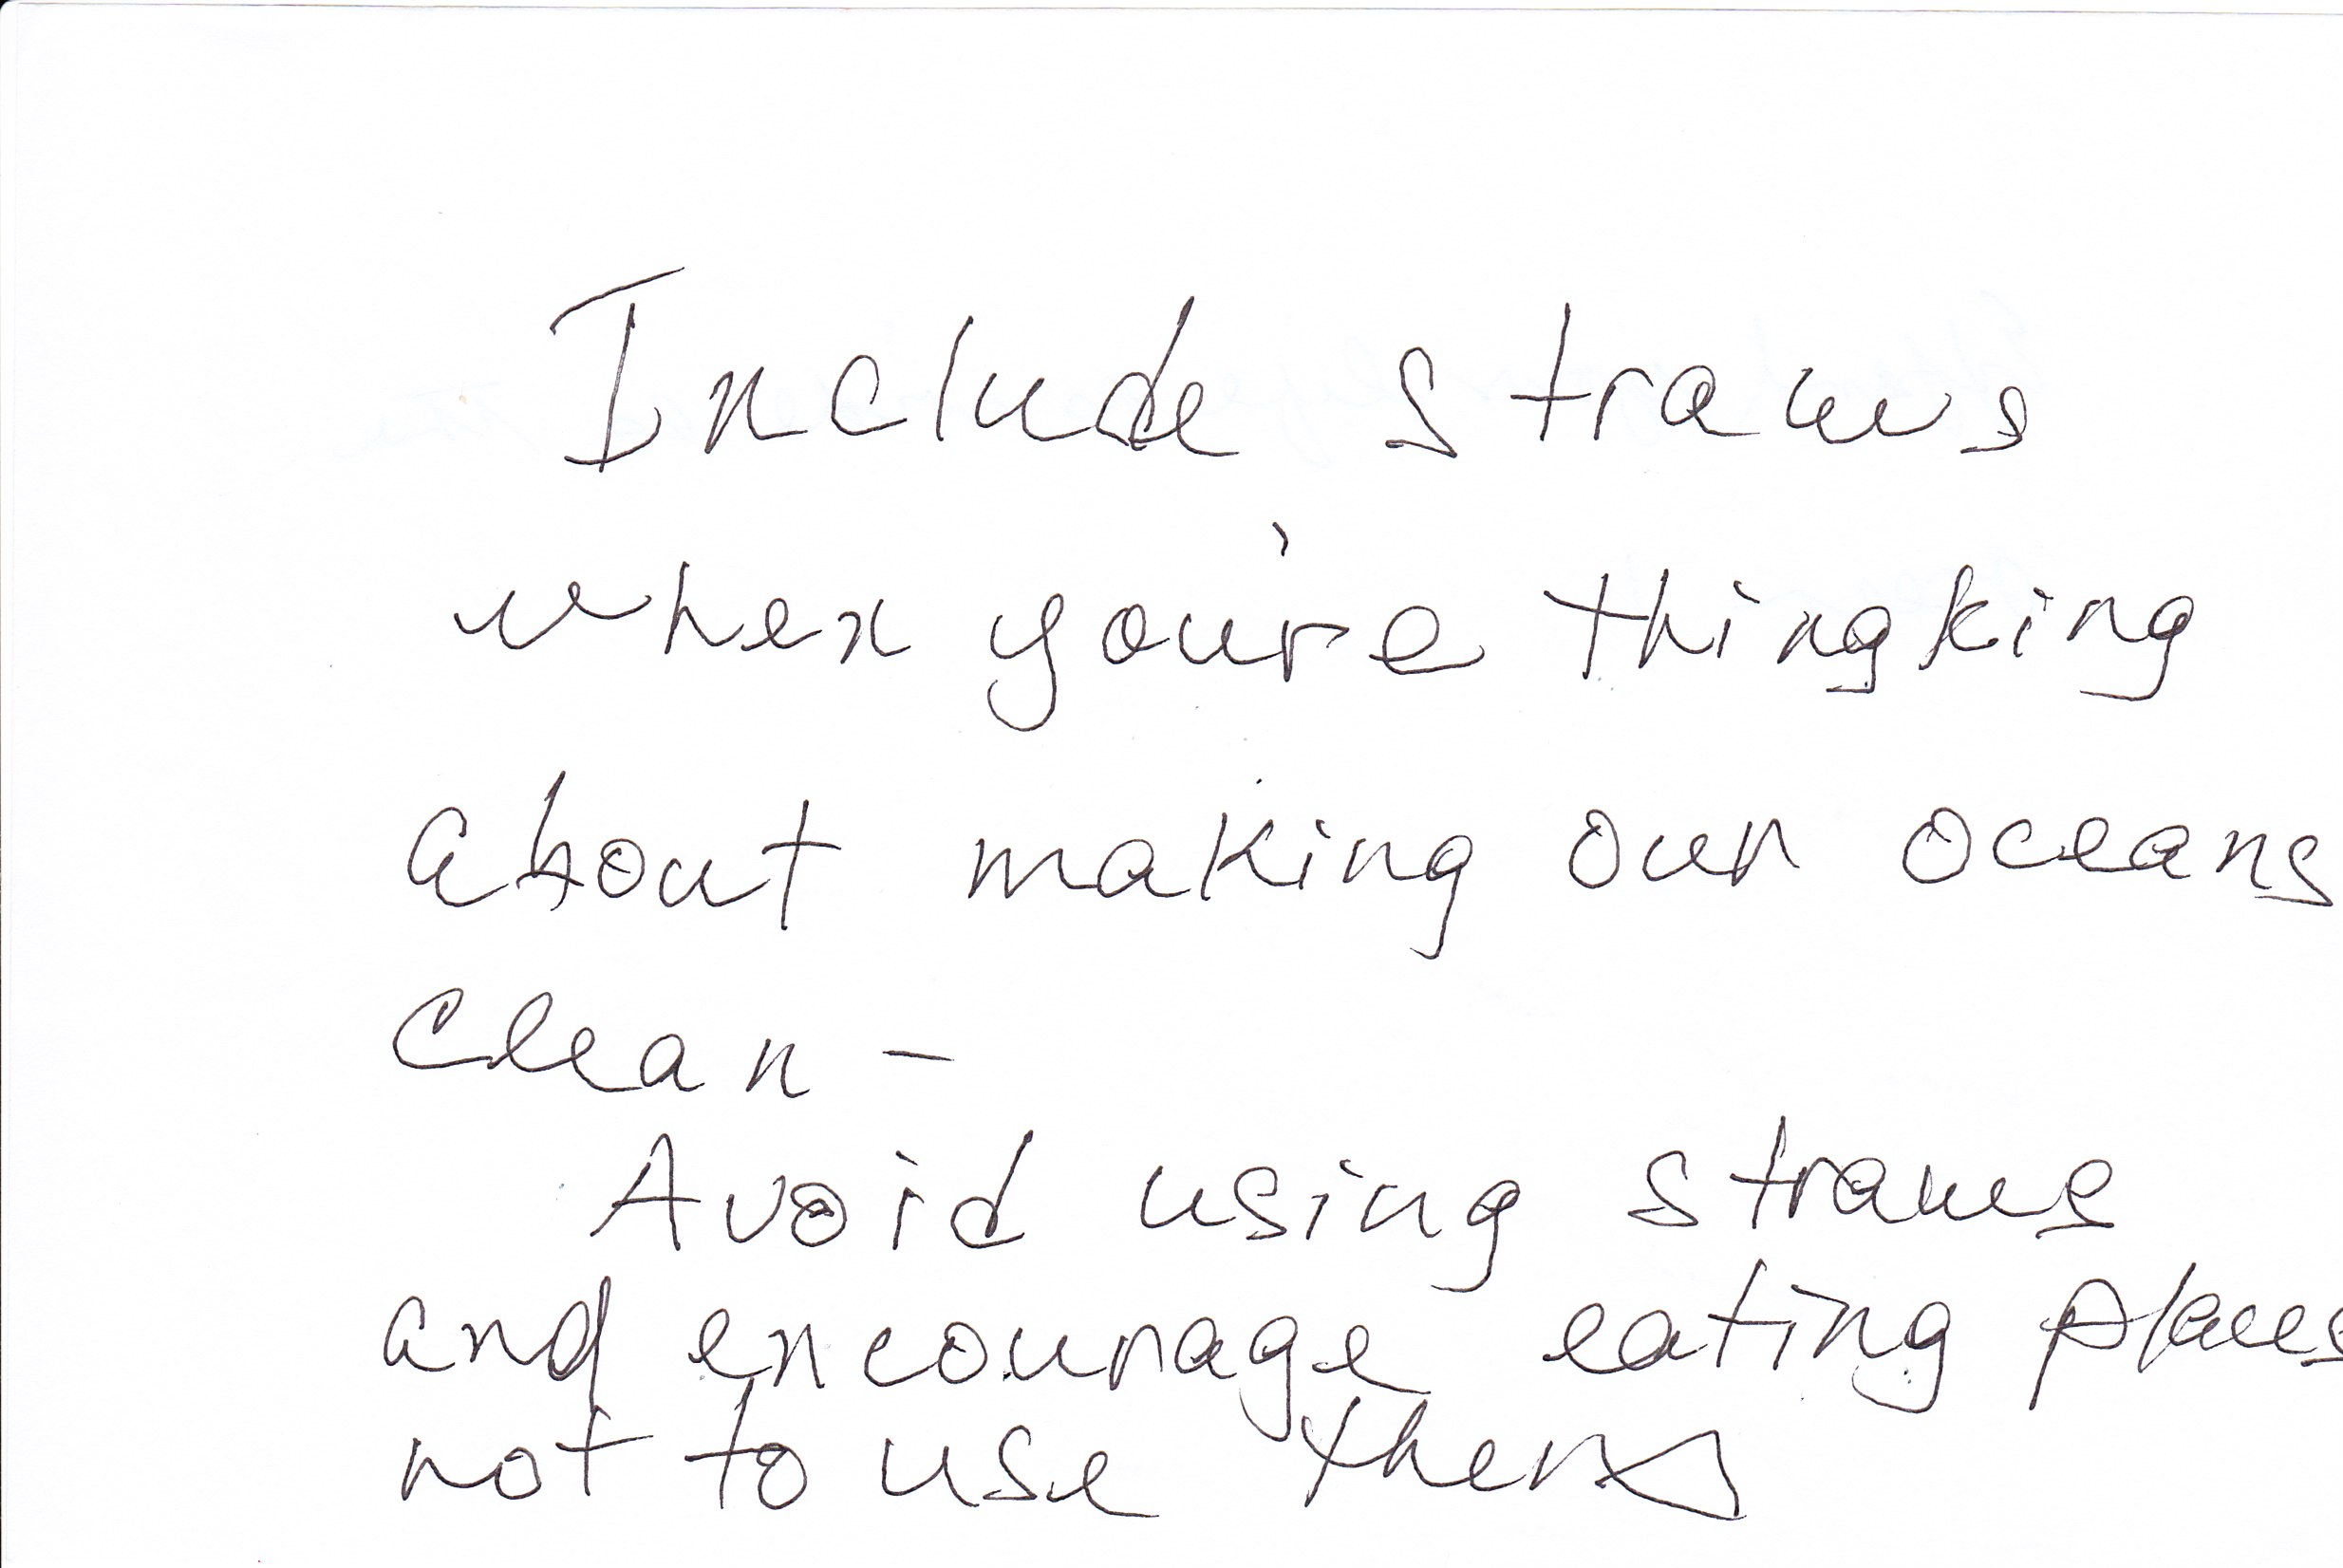 Include straws
when you're thingking
about making our oceans
clean -
Avoid using straws
and encourage eating places
not to use them